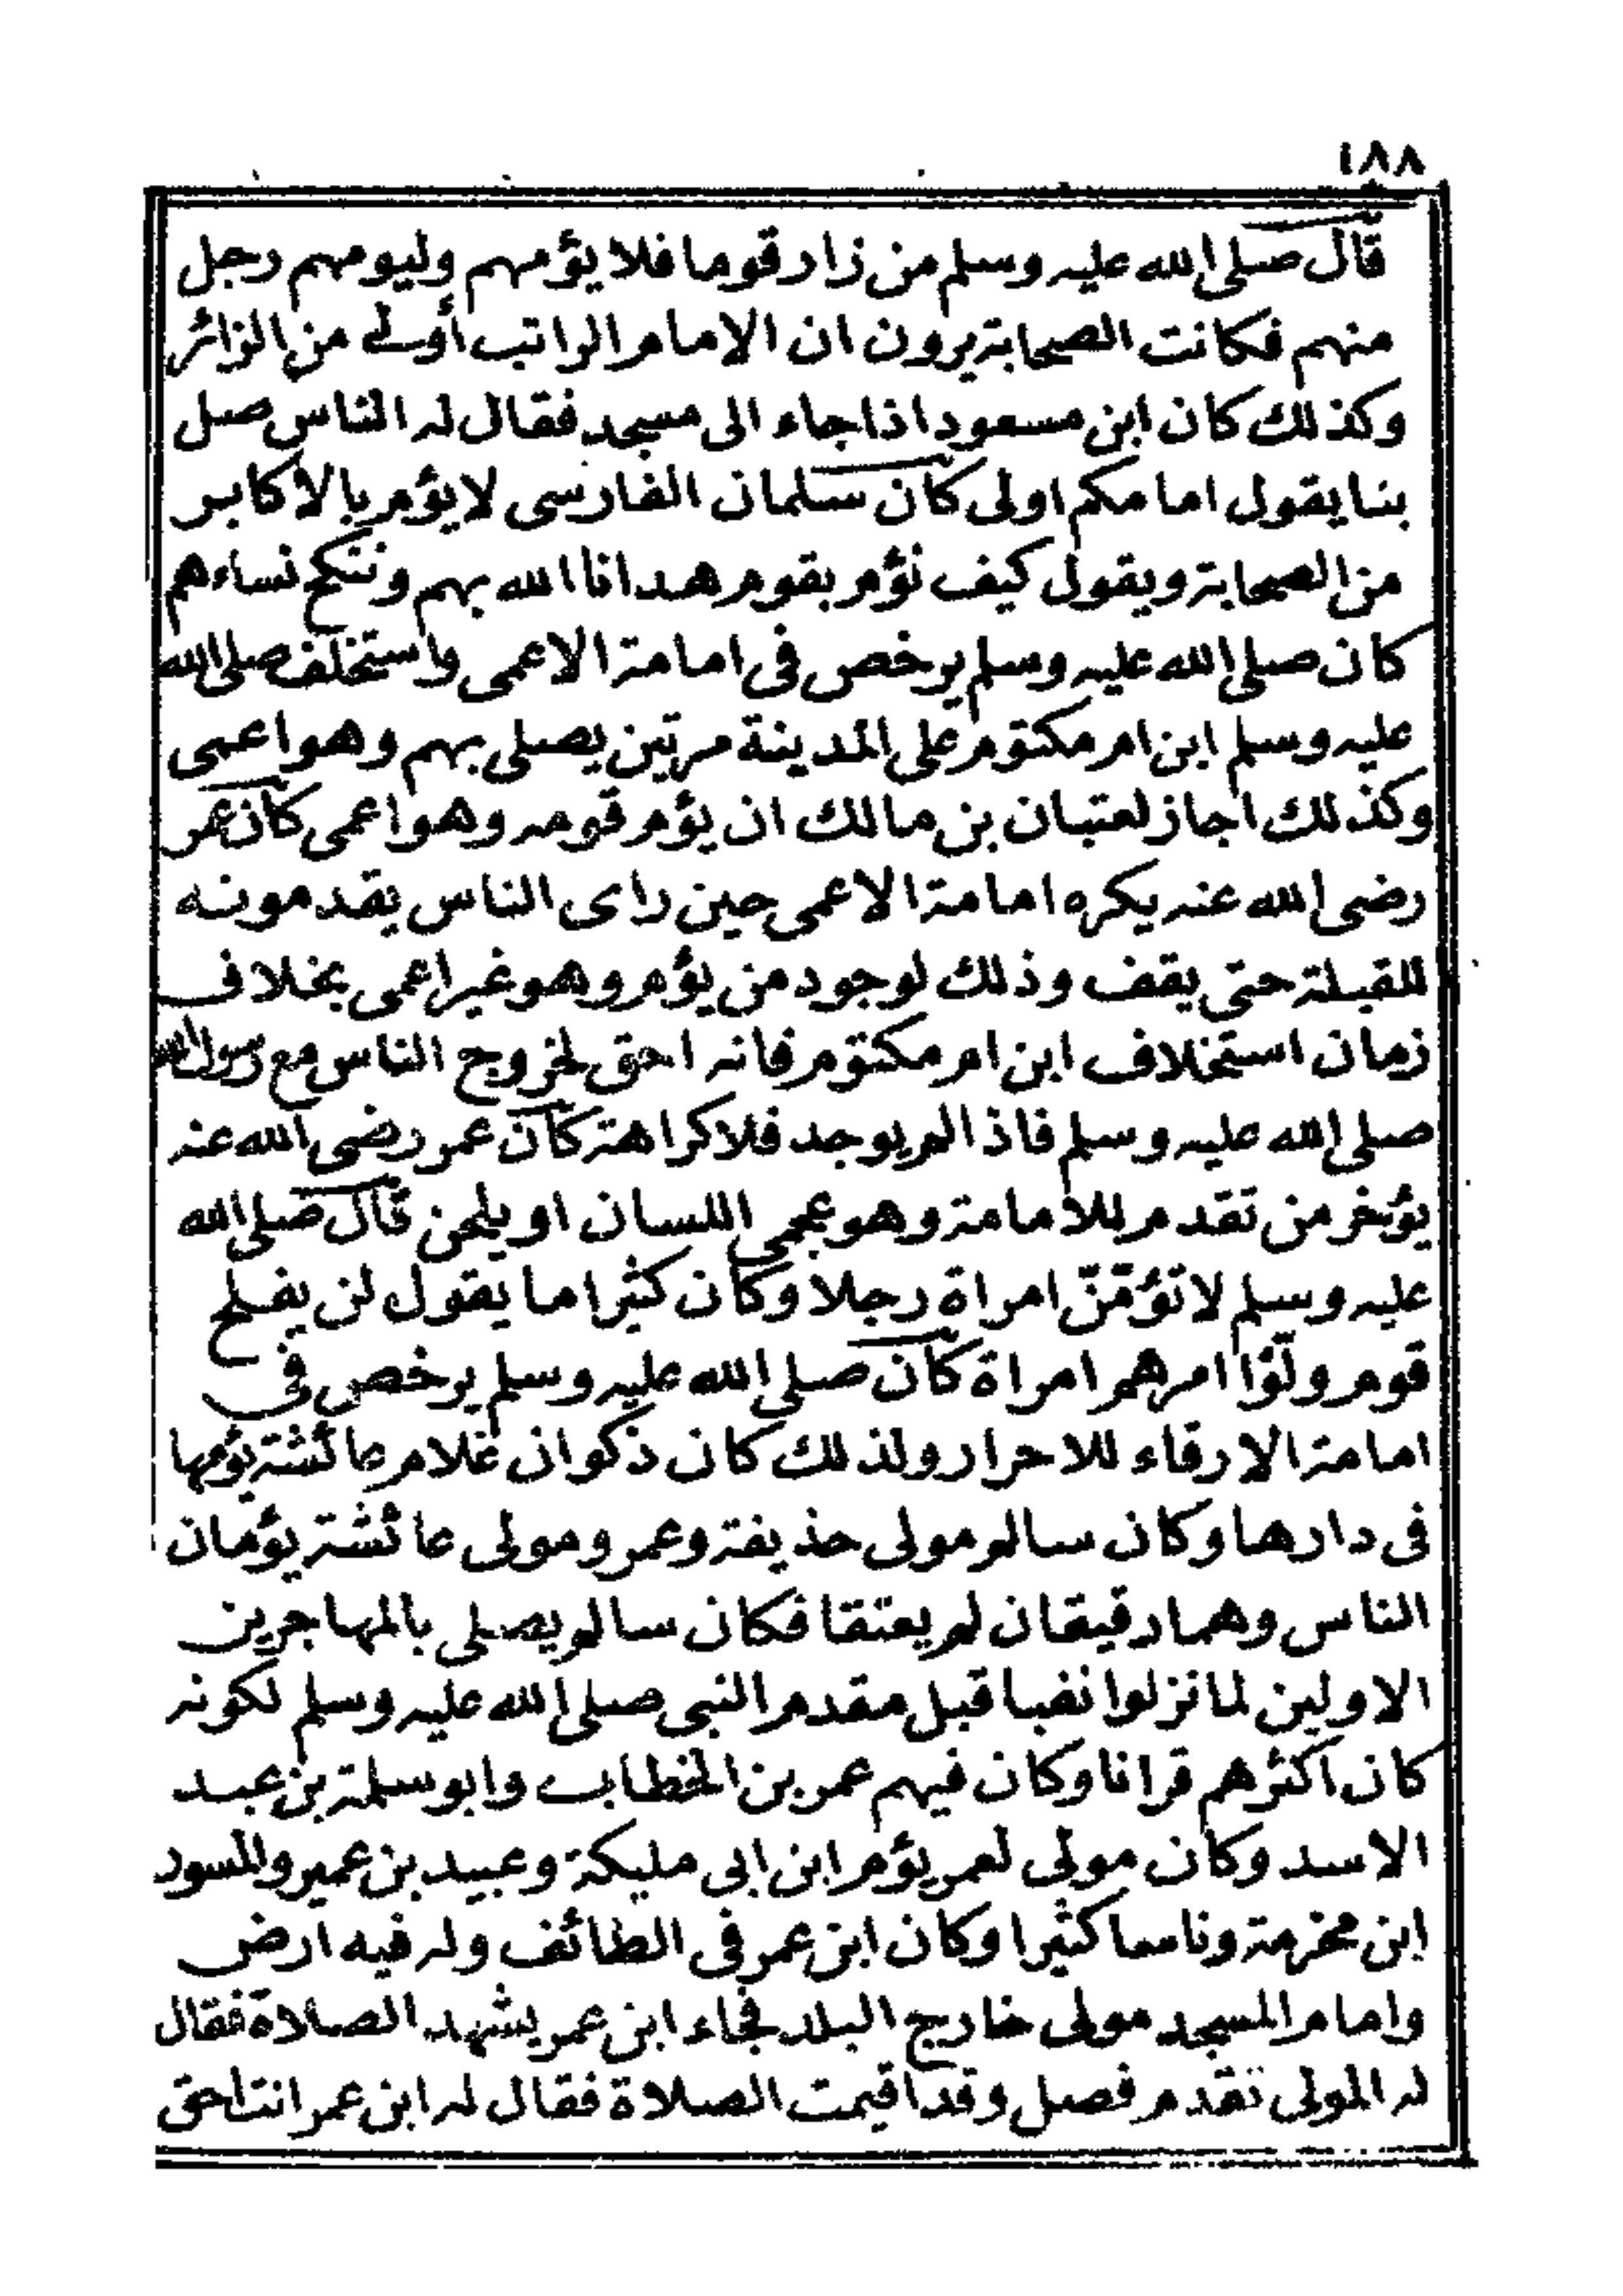 ١٨٨
قال صلى الله عليه وسلم من زار قوما فلا يؤمهم وليومهم رجل
منهم فكانت الصحابة يرون ان الامام الراتب أولى من الزائر
وكذلك كان ابن مسعود اذا جاء الى مسجد فقال له الناس صل
بنا يقول امامكم اولى كان سلمان الفارسى لا يؤم بالاكابر
من الصحابة ويقول كيف نؤم بقوم هدانا الله بهم وننكح نساءهم
كان صلى الله عليه وسلم يرخص فى امامة الاعمى واستخلف صلى الله
عليه وسلم ابن ام مكتوم على المدينة مرتين يصلى بهم وهو اعمى
وكذلك اجاز لعتبان بن مالك ان يؤم قومه وهو اعمى كان عمر
رضى الله عنه يكره امامة الاعمى حين راى الناس يقدمونه
للقبلة حتى يقف وذلك لوجود من يؤم وهو غير اعمى بخلاف
زمان استخلاف ابن ام مكتوم فانه احق لخروج الناس مع رسول الله
صلى الله عليه وسلم فاذا لم يوجد فلا كراهة كان عمر رضى الله عنه
يؤخر من تقدم للامامة وهو عجمى اللسان او يلحن قال صلى الله
عليه وسلم لا تؤمّنّ امراة رجلا وكان كثيرا ما يقول لن يفلح
قوم ولّوا امرهم امراة كان صلى الله عليه وسلم يرخص فى
امامة الارقاء للاحرار ولذلك كان ذكوان غلام عائشة يؤمها
فى دارها وكان سالم مولى حذيفة وعمرو مولى عائشة يؤمان
الناس وهما رقيقان لم يعتقا فكان سالم يصلى بالمهاجرين
الاولين لما نزلوا نقبا قبل مقدم النبى صلى الله عليه وسلم لكونه
كان اكثرهم قرانا وكان فيهم عمر بن الخطاب وابو سلمة بن عبد
الاسد وكان مولى لعمر يؤم ابن ابى مليكة وعبيد بن عمير والمسود
ابن مخرمة وناسا كثيرا وكان ابن عمر فى الطائف وله فيه ارض
وامام المسجد مولى خارج البلد فجاء ابن عمر يشهد الصلاة فقال
له المولى تقدم فصل وقد اقيمت الصلاة فقال له ابن عمر انت احق